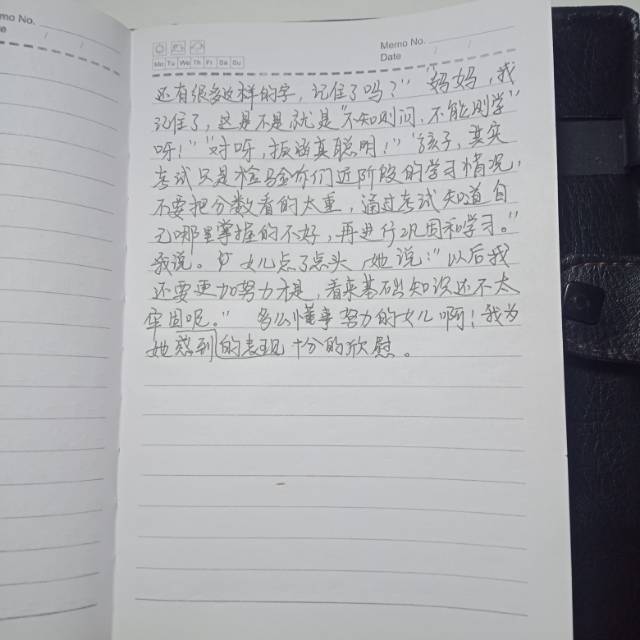 mo No.
e
Mo Tu We Th Fr Sa Su
Memo No.
Date / /
还有很多这样的字，记住了吗？”“妈妈，我
记住了，这是不是就是“不知则问，不能则学”
呀！”“对呀，孩真聪明！”“孩子，其实
考试只是检验你们近阶段的学习情况，
不要把分数看的太重，通过考试知道自
己哪里掌握的不好，再进行巩固和学习。”
我说。女儿点了点头，她说：“以后我
还要更加努力才是，看来基础知识还不太
牢固呢。”多么懂事努力的女儿啊！我为
她感到的表现十分的欣慰。